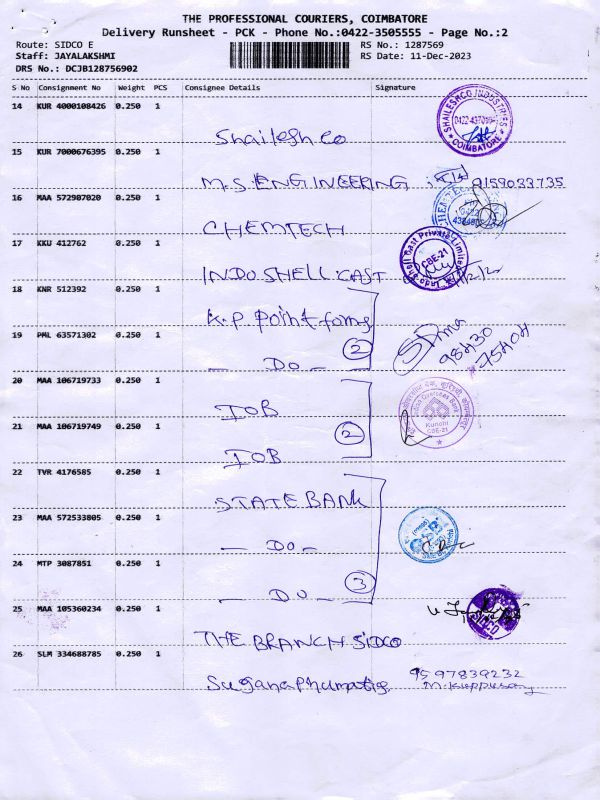 THE PROFESSIONAL COURIERS, COIMBATORE
Delivery Runsheet - PCK - Phone No.:0422-3505555 - Page No.:2
Route: SIDCO E
RS No.: 1287569
Staff: JAYALAKSHMI
RS Date: 11-Dec-2023
DRS No.: DCJB128756902
S No Consignment No Weight PCS Consignee Details Signature
14 KUR 4000108426 0.250 1
Shailesh co
SHAILESHCO INDUSTRIES
COIMBATORE
15 KUR 7000676395 0.250 1
M.S. ENGINEERING 9159033735
16 MAA 572907020 0.250 1
CHEMTECH
17 KKU 412762 0.250 1
INDO SHELL CAST
Indo Shell Cast Private Limited
CBE-21
18 KNR 512392 0.250 1
K.P Point forms
19 PML 63571302 0.250 1
- DO - 2
98430
75404
20 MAA 106719733 0.250 1
IOB
Indian Overseas Bank
Kurichi
CBE-21
21 MAA 106719749 0.250 1
IOB 2
22 TVR 4176585 0.250 1
STATE BANK
23 MAA 572533805 0.250 1
- DO -
24 MTP 3087851 0.250 1
- DO - 3
25 MAA 105360234 0.250 1
THE BRANCH SIDCO
26 SLM 334688785 0.250 1
Sugana Phumatigs
9597839232
M. Kuppusamy